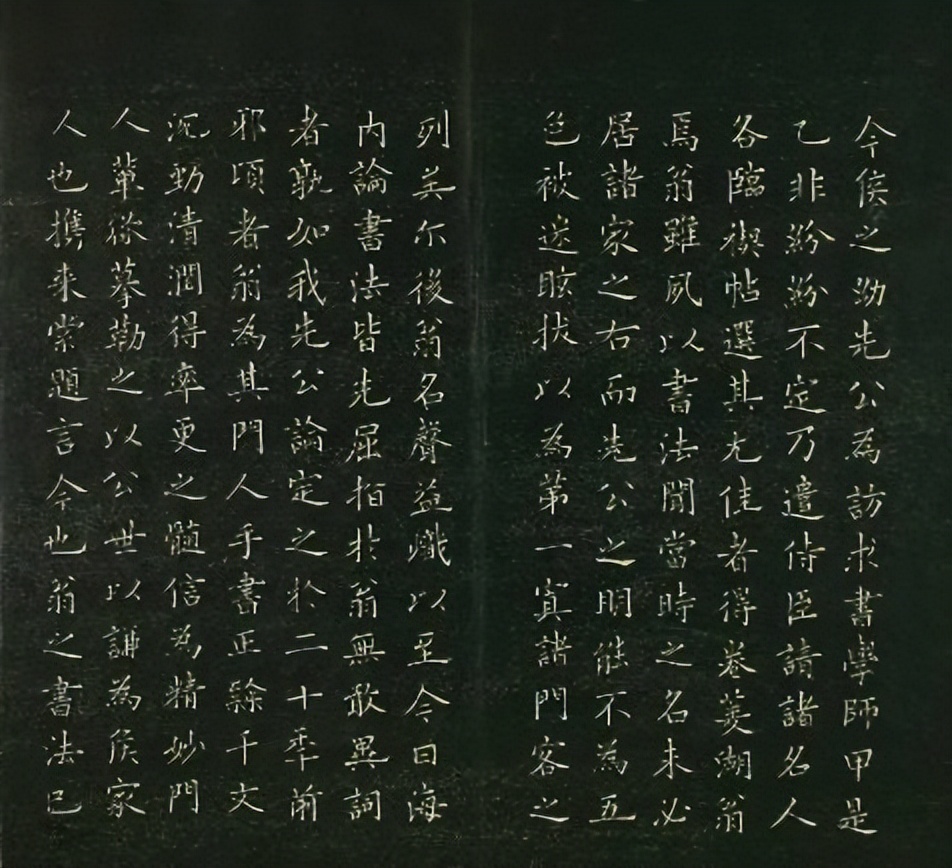 今侯之幼先公為訪求書學師甲是
乙非紛紛不定乃遣侍臣請諸名人
各臨禊帖選其尤佳者得卷菱湖翁
焉翁雖夙以書法聞當時之名未必
居諸家之右而先公之明能不為五
色被迷眩狀以為第一寘諸門客之
列美尓後翁名聲益熾以至今日海
内論書法皆先屈指於翁無敢異詞
者孰如我先公論定之於二十年前
邪頃者翁為其門人手書正緐千文
沉動清潤得率更之髓信為精妙門
人輩欲摹勒之以公世以謝為侯家
人也携来索題言今也翁之書法已